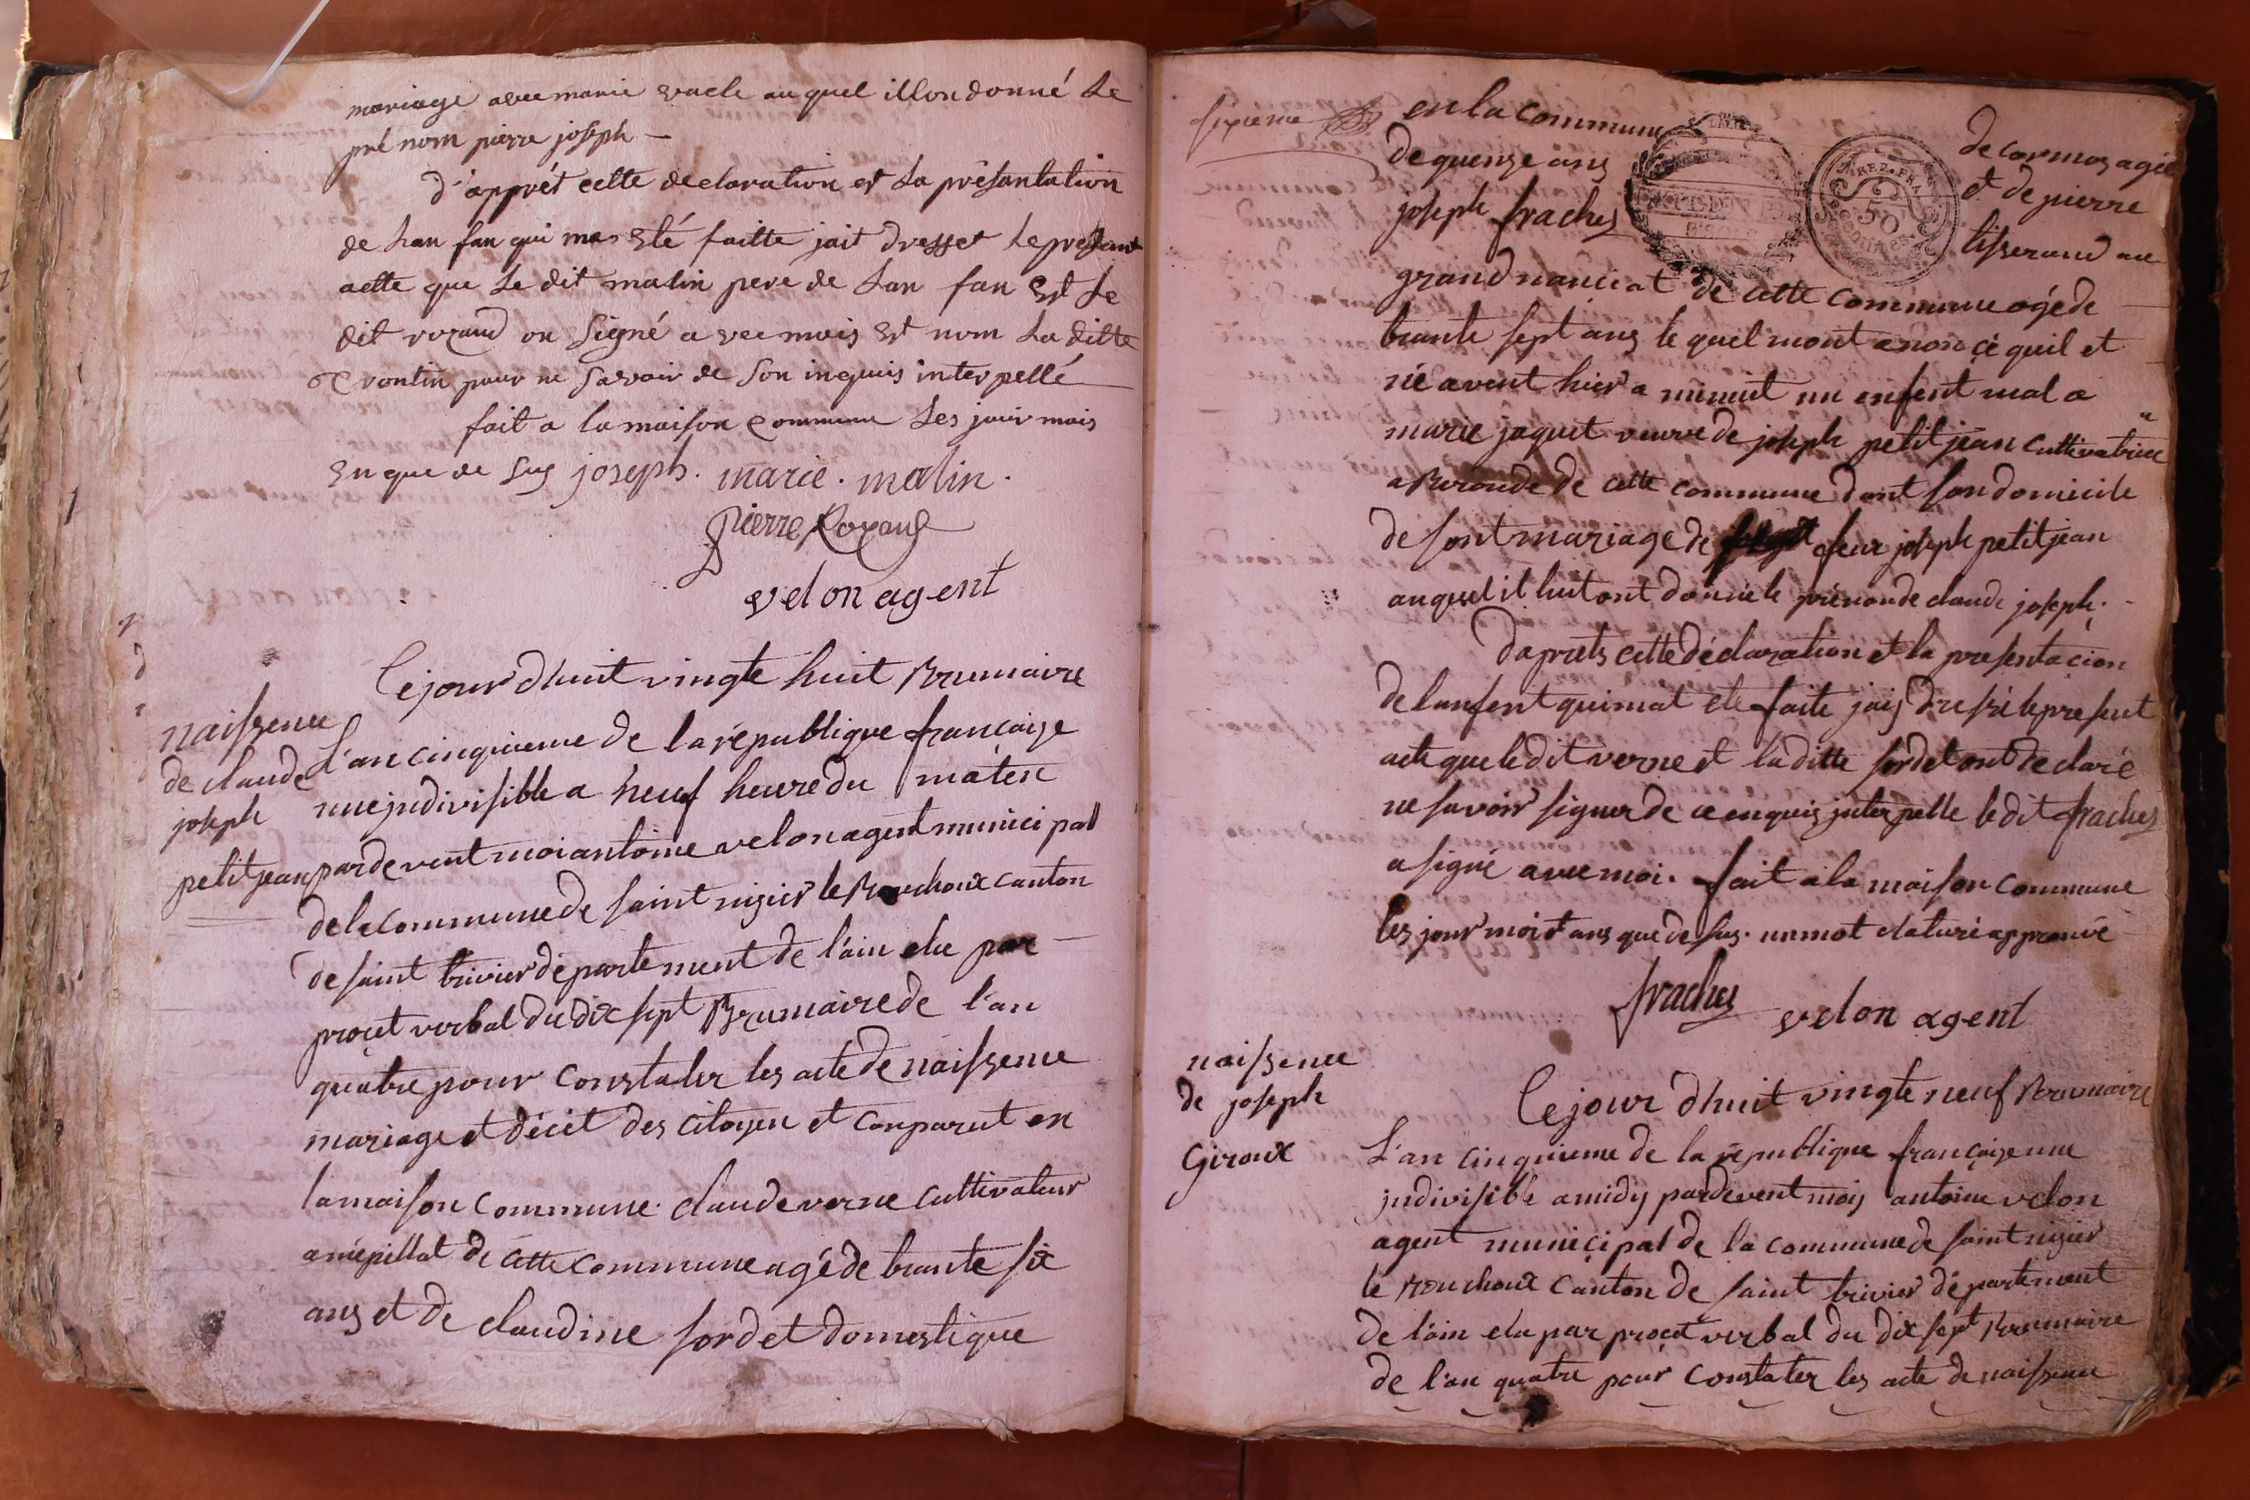 mariage avec marie vacle auquel illon donné le
pré nom pierre joseph
d'apprét cette declaration et la présantation
de lan fan qui mas eté faitte jait dresset le presant
actte que le dit matin pere de lan fan est le
dit rozand on signé a vec mois est nom la ditte
pour ne savoir de son inquis interpellé
fait a la maison commune les jour mois
en que de sus joseph. marie. matin.
pierre Rozand
velon agent
naissence
de claude
joseph
petitjean
Cejourdhuit vingte huit Brumaire
l'an cinquieme de la république françaize
une jndivisible a neuf heure du maten
par devent moi antoine velon agent municipal
de la commune de saint nizier le Bouchoux canton
de saint trivier département de l'ain elu par
proçet verbal du dix sept Brumaire de l'an
quatre pour constater les acte de naissence
mariage et décét des citoyen et comparut en
la maison commune. claude verne cultivateur
a mépillat de cette commune agé de trante six
ans et de claudine sordet domestique
sixieme
en la commune de cormos agée
de quenze ans et de pierre
joseph fraches tisserand au
REP. FRA.
50
CENTIMES
grand nanciat de cette commune agé de
trante sept ans le quel mont anoncé quil et
né avent hier a minuit un enfent mal a
marie jaquet veuve de joseph petitjean cultivatrice
a Beronde de cette commune dont son domicile
de sont mariage de feux joseph petitjean
auquel il luit ont donné le prénon de claude joseph.
Daprets cette déclaration et la presentacion
de lanfent qui mat ete faite jais dressé le present
acte que le dit verne et la ditte sordet ont declaré
ne savoir signer de ce enquis jnterpelle le dit fraches
a signé avec moi. fait a la maison commune
les jour mois et ans que de sus. un mot claturé approuvé
fraches velon agent
naissence
de joseph
Giroux
Cejour dhuit vingte neuf Brumaire
L'an cinquieme de la république françaize une
jndivisible a midy pardevent mois antoine velon
agent municipal de la commune de saint nizier
le Bouchoux canton de saint trivier département
de l'ain elu par proçet verbal du dix sept Brumaire
de l'an quatre pour constater les acte de naissence